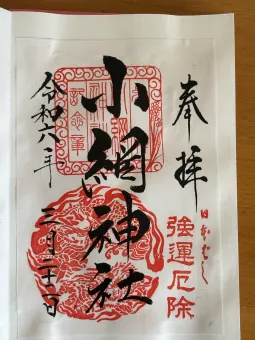 奉拝
日本ばし
強運厄除
小網神社
令和六年
三月二十二日